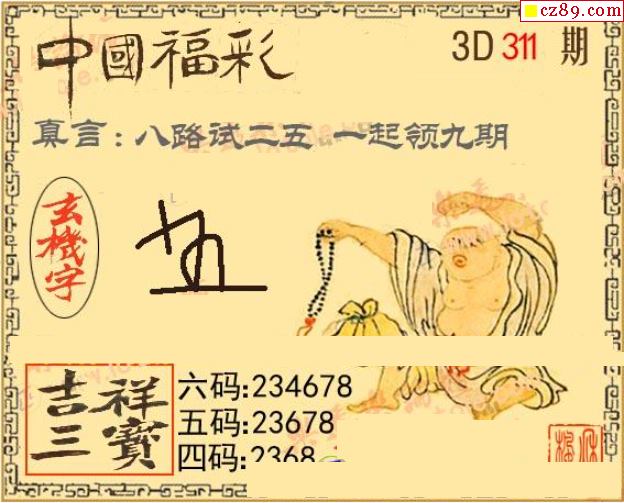 cz89.com
中國福彩
3D 311 期
真言:八路试二五 一起领九期
玄機字
吉祥三寶
六码:234678
五码:23678
四码:2368